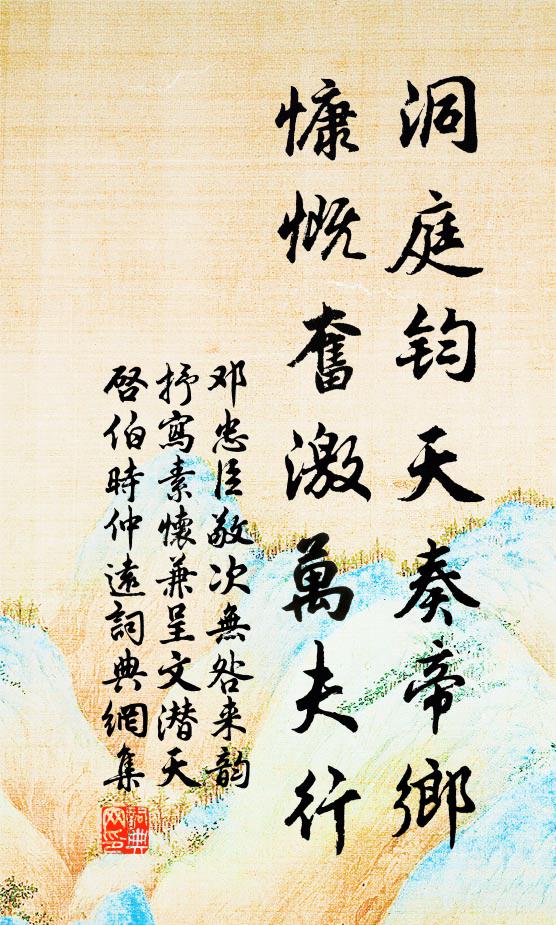 洞庭钧天奏帝鄉
慷慨奮激萬夫行
邓忠臣敬次無咎来韵
抒寫素懷兼呈文潜天
啓伯時仲遠詞典網集
詞典
网印